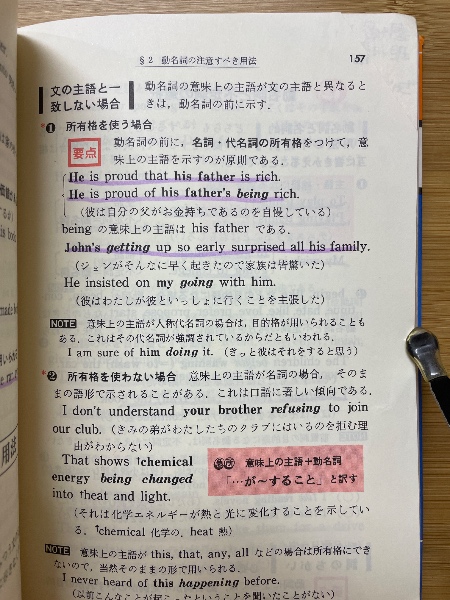 §2 動名詞の注意すべき用法 157
文の主語と一
致しない場合
動名詞の意味上の主語が文の主語と異なると
きは，動名詞の前に示す．
*❶ 所有格を使う場合
要点
動名詞の前に，名詞・代名詞の所有格をつけて，意
味上の主語を示すのが原則である．
He is proud that his father is rich.
He is proud of his father's being rich.
（彼は自分の父がお金持ちであるのを自慢している）
being の意味上の主語は his father である．
John's getting up so early surprised all his family.
（ジョンがそんなに早く起きたので家族は皆驚いた）
He insisted on my going with him.
（彼はわたしが彼といっしょに行くことを主張した）
NOTE 意味上の主語が人称代名詞の場合は，目的格が用いられることも
ある．これはその代名詞が強調されているからだともいわれる．
I am sure of him doing it. （きっと彼はそれをすると思う）
*❷ 所有格を使わない場合 意味上の主語が名詞の場合，そのま
まの語形で示されることがある．これは口語に著しい傾向である．
I don't understand your brother refusing to join
our club.（きみの弟がわたしたちのクラブにはいるのを拒む理
由がわからない）
That shows †chemical
energy being changed
into †heat and light.
意味上の主語＋動名詞
「…が〜すること」と訳す
（それは化学エネルギーが熱と光に変化することを示してい
る．†chemical 化学の．heat 熱）
NOTE 意味上の主語が this, that, any, all などの場合は所有格にでき
ないので，当然そのままの形で用いられる．
I never heard of this happening before.
（以前こんなことが起こったということを聞いたことがない）
用法